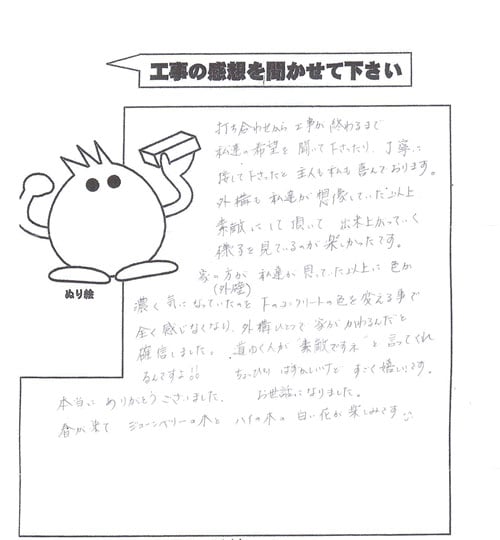 工事の感想を聞かせて下さい
打ち合わせから工事が終わるまで
私達の希望を聞いて下さったり、丁寧に
接して下さったと主人も私も喜んでおります。
外構も私達が想像していた以上
素敵にして頂いて 出来上がっていく
様子を見ているのが楽しかったです。
家の方が私達が思っていた以上に色が
(外壁)
濃く気になっていたのと下のコンクリートの色を変える事で
全く感じなくなり、外構ひとつで家がかわるんだと
確信しました。 道ゆく人が"素敵ですネ"と言ってくれ
るんですよ!! ちょっぴりはずかしいけどすごく嬉しいです。
本当にありがとうございました。 お世話になりました。
春が来てジューンベリーの木と ハナの木の 白い花が楽しみです
ぬり絵